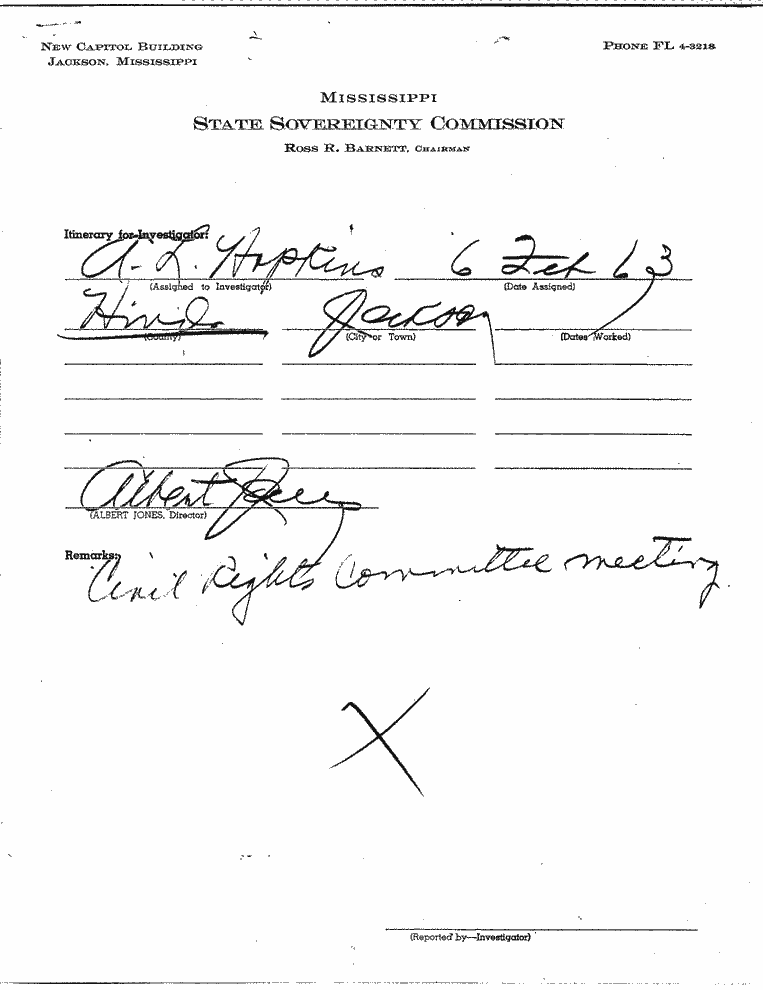 NEW CAPITOL BUILDING
JACKSON, MISSISSIPPI
PHONE FL 4-3218
MISSISSIPPI
STATE SOVEREIGNTY COMMISSION
ROSS R. BARNETT, CHAIRMAN
Itinerary for Investigator:
A. L. Hopkins 6 Feb 63
(Assigned to Investigator) (Date Assigned)
Hinds Jackson
(County) (City or Town) (Dates Worked)
Albert Jones
(ALBERT JONES, Director)
Remarks:
Civil Rights Committee meeting.
X
(Reported by—Investigator)